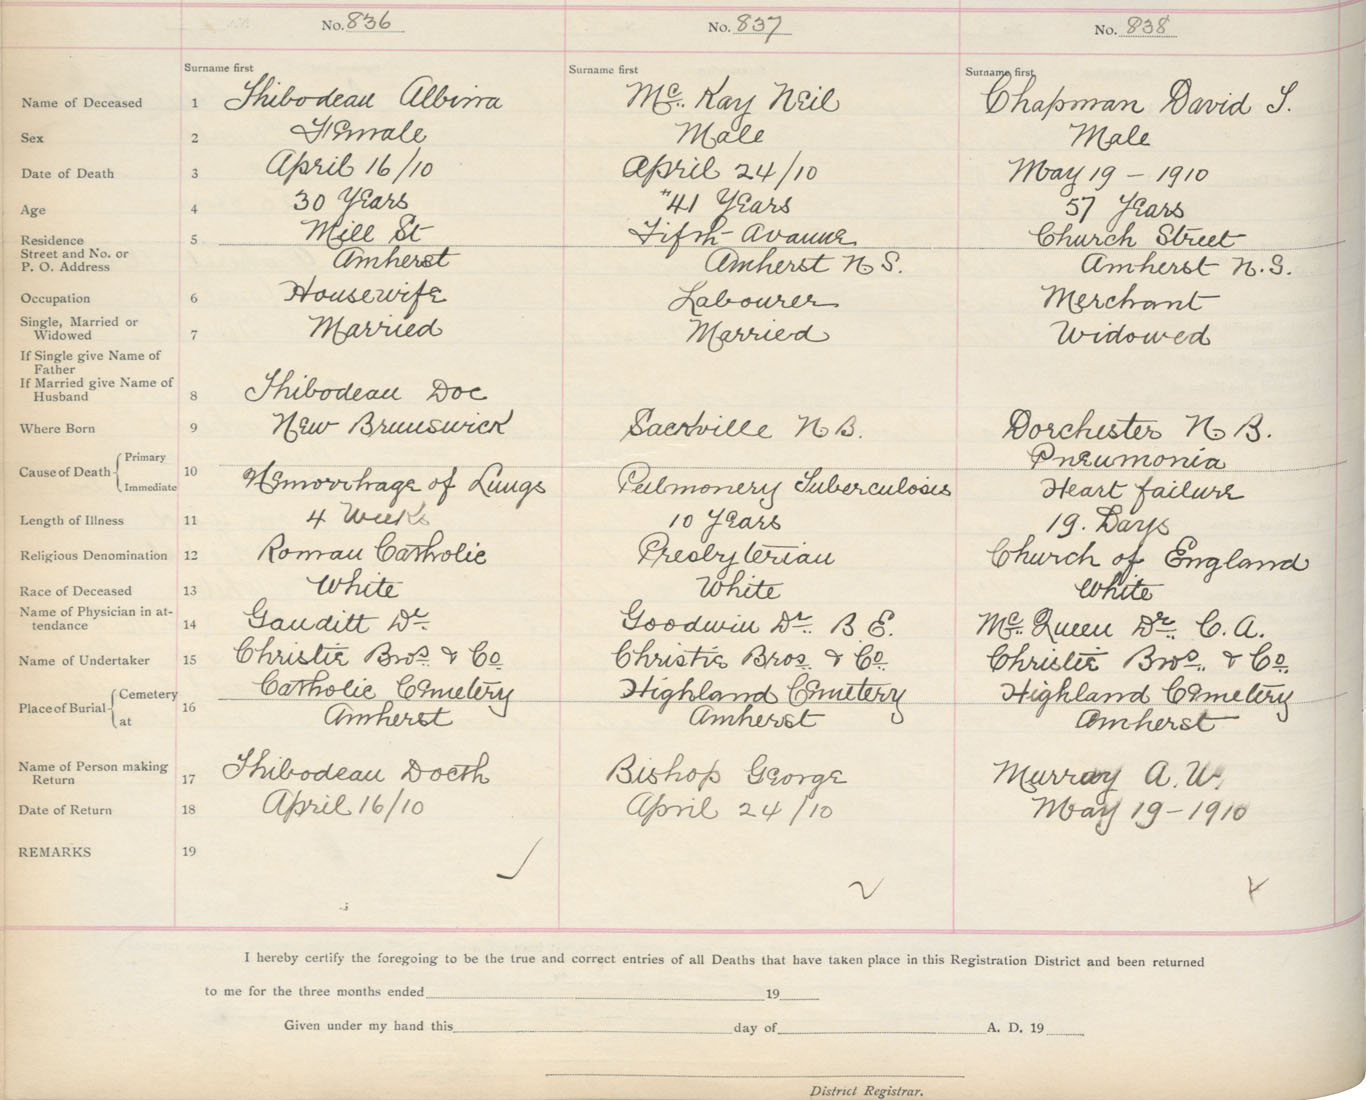 No. 836 No. 837 No. 838
Surname first Surname first Surname first
Name of Deceased 1 Thibodeau Albina Mc. Kay Neil Chapman David S.
Sex 2 Female Male Male
Date of Death 3 April 16/10 April 24/10 May 19 - 1910
Age 4 30 Years 41 Years 57 Years
Residence 5 Mill St Fifth Avanue Church Street
Street and No. or
P. O. Address Amherst Amherst N S. Amherst N.S.
Occupation 6 Housewife Labourer Merchant
Single, Married or
Widowed 7 Married Married Widowed
If Single give Name of
Father
If Married give Name of
Husband 8 Thibodeau Doc
Where Born 9 New Brunswick Sackville N B. Dorchester N B.
Cause of Death Primary 10 Pneumonia
Immediate Hemorrhage of Lungs Pulmonery Tuberculosis Heart failure
Length of Illness 11 4 Weeks 10 Years 19. Days
Religious Denomination 12 Roman Catholic Presbyterian Church of England
Race of Deceased 13 White White White
Name of Physician in at-
tendance 14 Gauditt Dr. Goodwin Dr. B E. Mc. Queen Dr. C. A.
Name of Undertaker 15 Christie Bros. & Co. Christie Bros. & Co. Christie Bros. & Co.
Place of Burial Cemetery 16 Catholic Cemetery Highland Cemetery Highland Cemetery
at Amherst Amherst Amherst
Name of Person making
Return 17 Thibodeau Docth Bishop George Murray A. W.
Date of Return 18 April 16/10 April 24/10 May 19-1910
REMARKS 19
I hereby certify the foregoing to be the true and correct entries of all Deaths that have taken place in this Registration District and been returned
to me for the three months ended 19
Given under my hand this day of A. D. 19
District Registrar.